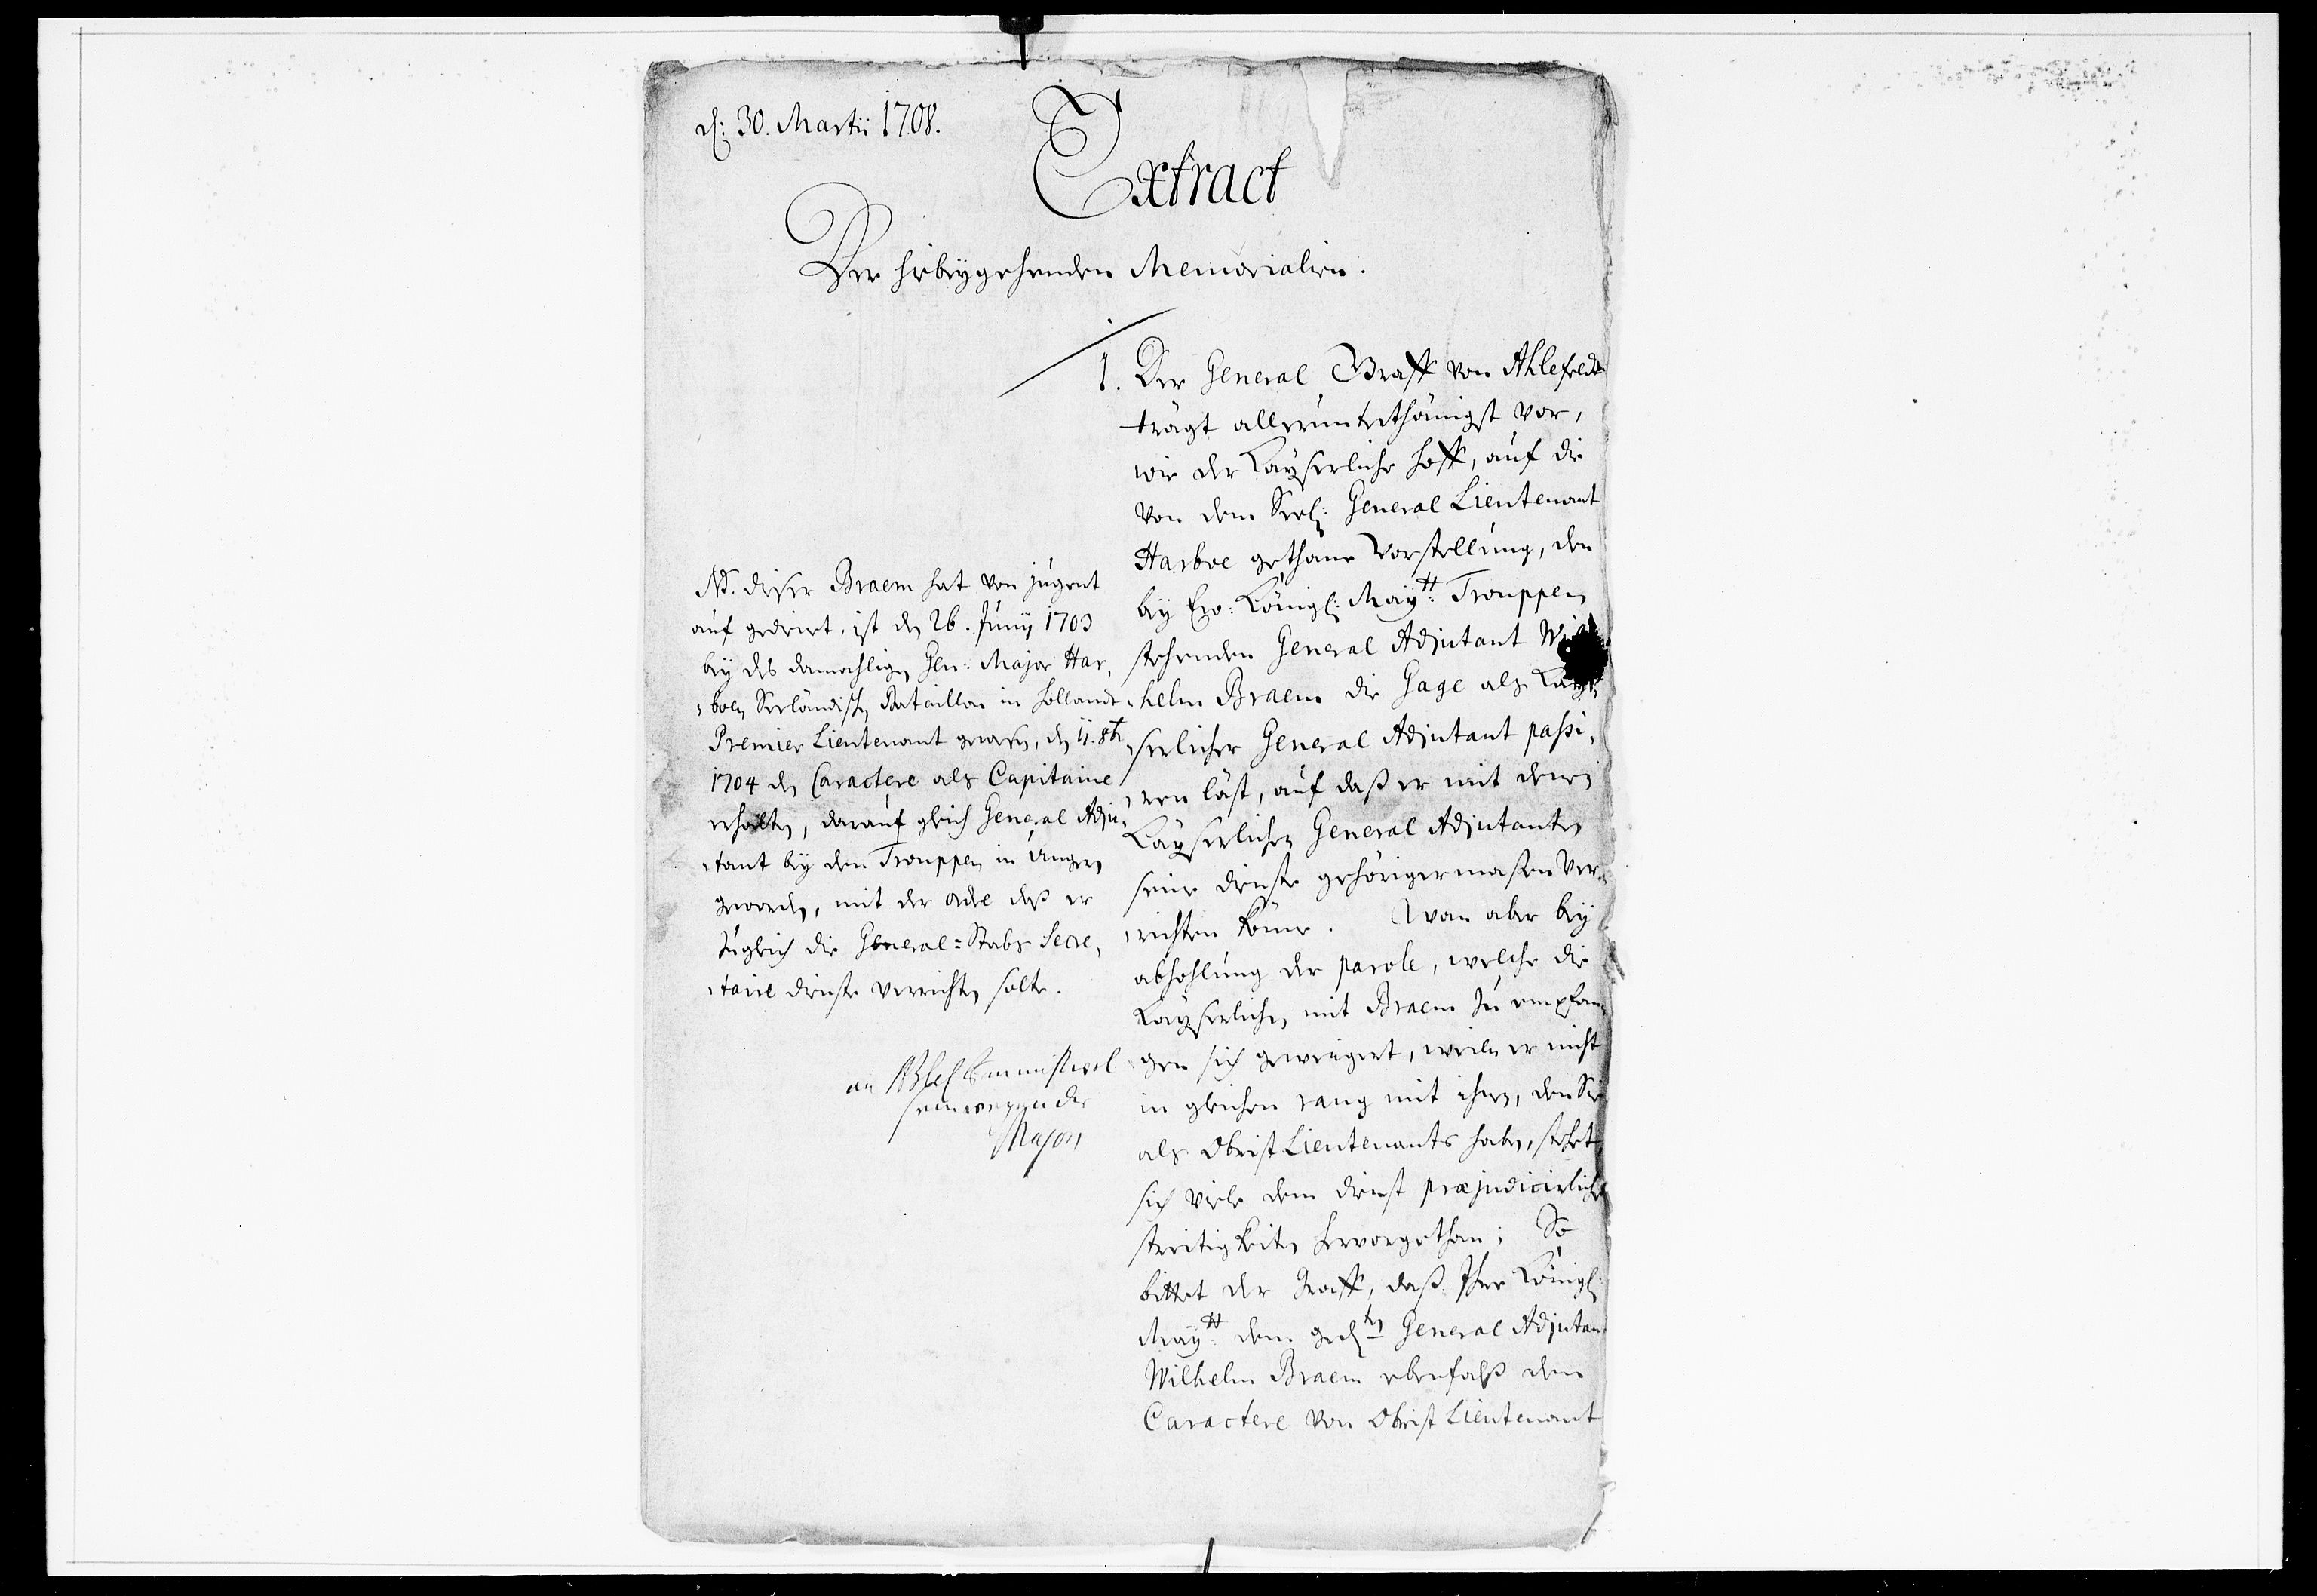 d: 30. Martii 1708.
Extract
Der hiebeygehenden Memorialien.
1. Der General Graff von Ahlefeldt
trägt allerunterthänigst vor,
wie der Kayserliche Hoff, auf die
von dem Seel: General Lieutenant
Harboe gethane Vorstellung, den
bey Ew: Königl: Maytt: Trouppen
stehenden General Adjutant Wil
helm Braem die Gage als Kay,
serlicher General Adjutant passi,
ren läst, auf daß er mit denen
Kayserlichen General Adjutanten
seine dienste gehörigermaßen ver,
richten könne. Wan aber bey
abhohlung der parole, welche die
Kayserlichen mit Braem zu empfan,
gen sich geweigert, weilen er nicht
in gleichen rang mit ihnen, den Sie
als Obrist Lieutenants haben, stehet
sich viele dem dienst præjudicirliche
streitigkeiten hervorgethan; So
bittet der Graff, daß Ihre Königl:
Maytt: dem gedten General Adjutan
Wilhelm Braem ebenfalß den
Caractere von Obrist Lieutenant
NB. dieser Braem hat von jugent
auf gedienet, ist den 26. Junij 1703
bey des damahligen Gen: Major Har,
boen Seeländischen Bataillon in Hollandt
Premier Lieutenant gewesen, den 11. 8br
1704 den Caractere als Capitaine
erhalten, darauf gleich General Adju,
tant bey den Trouppen in Ungern
geworden, mit der ordre daß er
zugleich die General-Stabs Secre,
taire dienste verrichten solte.
Major